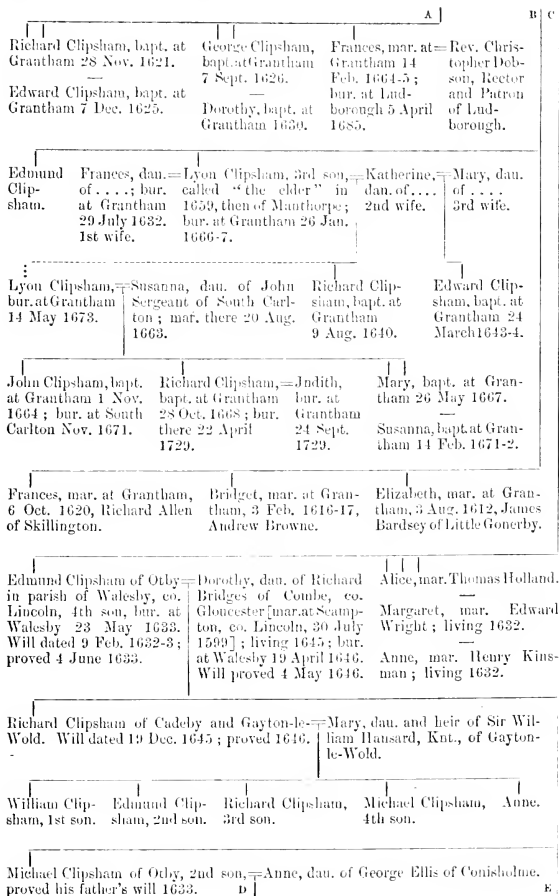 A B C
Richard Clipsham, bapt. at
Grantham 28 Nov. 1621.
—
Edward Clipsham, bapt. at
Grantham 7 Dec. 1625.
George Clipsham,
bapt. at Grantham
7 Sept. 1626.
—
Dorothy, bapt. at
Grantham 1630.
Frances, mar. at=
Grantham 14
Feb. 1664-5;
bur. at Lud-
borough 5 April
1685.
Rev. Chris-
topher Dob-
son, Rector
and Patron
of Lud-
borough.
Edmund
Clip-
sham.
Frances, dau.=
of . . . . ; bur.
at Grantham
29 July 1632.
1st wife.
Lyon Clipsham, 3rd son,=
called "the elder" in
1659, then of Manthorpe;
bur. at Grantham 26 Jan.
1666-7.
Katherine,=
dau. of . . . .
2nd wife.
Mary, dau.
of . . . .
3rd wife.
Lyon Clipsham,=
bur. at Grantham
14 May 1673.
Susanna, dau. of John
Sergeant of South Carl-
ton; mar. there 20 Aug.
1663.
Richard Clip-
sham, bapt. at
Grantham
9 Aug. 1640.
Edward Clip-
sham, bapt. at
Grantham 24
March 1643-4.
John Clipsham, bapt.
at Grantham 1 Nov.
1664; bur. at South
Carlton Nov. 1671.
Richard Clipsham,=
bapt. at Grantham
28 Oct. 1668; bur.
there 22 April
1729.
Judith,
bur. at
Grantham
24 Sept.
1729.
Mary, bapt. at Gran-
tham 26 May 1667.
—
Susanna, bapt. at Gran-
tham 14 Feb. 1671-2.
Frances, mar. at Grantham,
6 Oct. 1620, Richard Allen
of Skillington.
Bridget, mar. at Gran-
tham, 3 Feb. 1616-17,
Andrew Browne.
Elizabeth, mar. at Gran-
tham, 3 Aug. 1612, James
Bardsey of Little Gonerby.
Edmund Clipsham of Otby=
in parish of Walesby, co.
Lincoln, 4th son, bur. at
Walesby 23 May 1633.
Will dated 9 Feb. 1632-3;
proved 4 June 1633.
Dorothy, dau. of Richard
Bridges of Combe, co.
Gloucester [mar. at Scamp-
ton, co. Lincoln, 30 July
1599]; living 1645; bur.
at Walesby 19 April 1646.
Will proved 4 May 1646.
Alice, mar. Thomas Holland.
—
Margaret, mar. Edward
Wright; living 1632.
—
Anne, mar. Henry Kins-
man; living 1632.
Richard Clipsham of Cadeby and Gayton-le-=
Wold. Will dated 19 Dec. 1645; proved 1646.
Mary, dau. and heir of Sir Wil-
liam Hansard, Knt., of Gayton-
le-Wold.
William Clip-
sham, 1st son.
Edmund Clip-
sham, 2nd son.
Richard Clipsham,
3rd son.
Michael Clipsham,
4th son.
Anne.
Michael Clipsham of Otby, 2nd son,=Anne, dau. of George Ellis of Conisholme.
proved his father's will 1633. D E